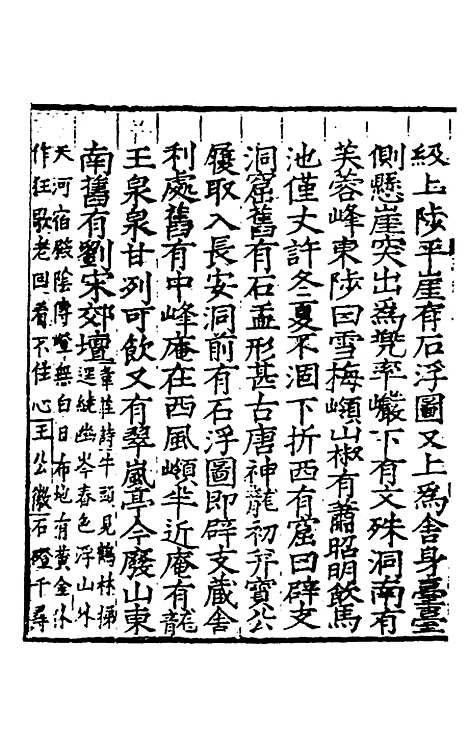 級上陟平崖有石浮圖又上爲舍身臺臺
側懸崖突出爲兠率巖下有文殊洞南有
芙蓉峰東陟曰雪梅嶺山椒有蕭昭明飲馬
池僅丈許冬夏不涸下折西有窟曰辟支
洞窟舊有石盂形甚古唐神龍初幷寶公
履取入長安洞前有石浮圖即辟支藏舍
利處舊有中峰庵在西風嶺半近庵有龍
王泉泉甘冽可飲又有翠嵐亭今廢山東
南舊有劉宋郊壇韋莊詩牛頭見鶴林梯
逕繞幽岑春色浮山外
天河宿殿陰傳燈無白日布地有黃金休
作狂歌老回看不住心王公徽石磴千尋